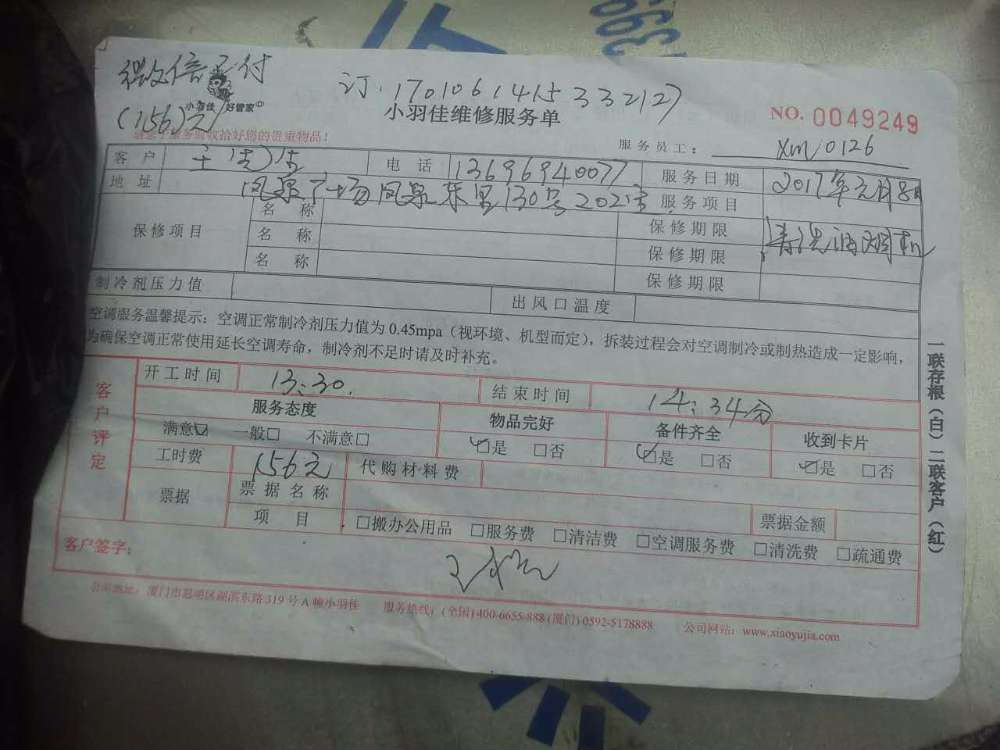 微信已付
订.170106141533212７
(156)元 小羽佳 好管家
小羽佳维修服务单
NO. 0049249
服务员工: xm0126
客户 王 电话 13696940077 服务日期 2017年元月8日
地址 凤泉广场凤泉东里130号202室 服务项目 清洗油烟机
保修项目 名称 保修期限
名称 保修期限
名称 保修期限
制冷剂压力值 出风口温度
空调服务温馨提示：空调正常制冷剂压力值为0.45mpa（视环境、机型而定），拆装过程会对空调制冷或制热造成一定影响，
为确保空调正常使用延长空调寿命，制冷剂不足时请及时补充。
客户评定
开工时间 13:30. 结束时间 14:34分
服务态度 物品完好 备件齐全 收到卡片
满意☑ 一般□ 不满意□ ☑是 □否 ☑是 □否 ☑是 □否
工时费 156元 代购材料费
票据 票据名称 票据金额
项目 □搬办公用品 □服务费 □清洁费 □空调服务费 □清洗费 □疏通费
客户签字:
公司地址：厦门市思明区湖滨东路319号A幢小羽佳 服务热线：(全国)400-6655-888 (厦门)0592-5178888 公司网站：www.xiaoyujia.com
一联存根（白）二联客户（红）